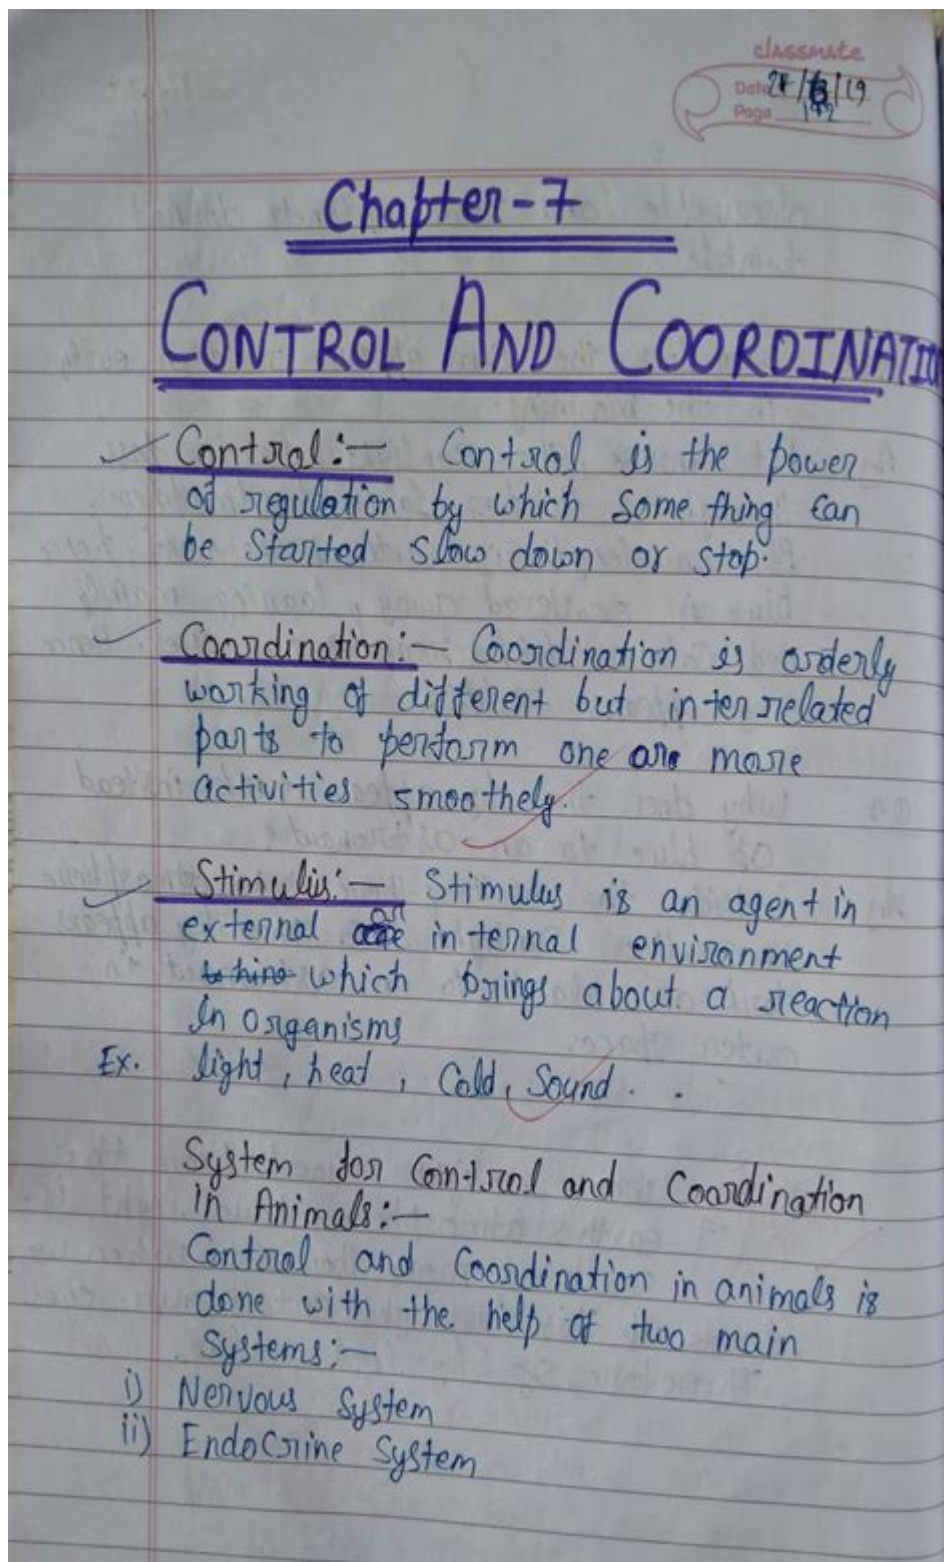 classmate
Date 27/8/19
Page 142
Chapter-7
CONTROL AND COORDINATIO
Control:— Control is the power
of regulation by which some thing can
be started slow down or stop.
Coordination:— Coordination is orderly
working of different but inter related
parts to perform one are more
activities smoothely.
Stimulus:— Stimulus is an agent in
external or internal environment
which brings about a reaction
in organisms
Ex. light, heat, Cold, Sound.
System for Control and Coordination
in Animals:—
Control and Coordination in animals is
done with the help of two main
Systems:—
i) Nervous System
ii) Endocrine System